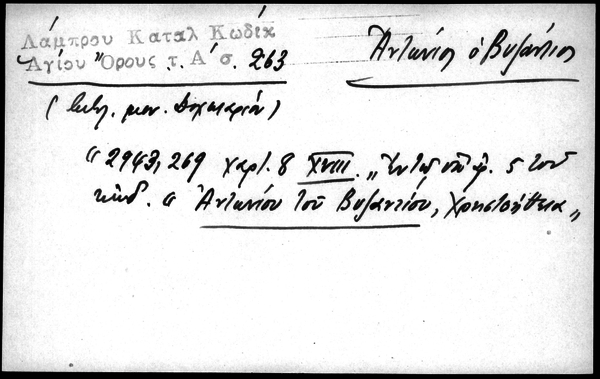 Λάμπρου Καταλ Κωδικ
Ἁγίου Ὄρους τ. Α΄ σ. 263
Ἀντώνιος ὁ Βυζάντιος
(βιβλ. μον. Δοχειαρίου)
"2943, 269 χαρτ. 8 XVIII. „ φ. 5 τοῦ
κώδ. " Ἀντωνίου τοῦ Βυζαντίου, Χρηστοήθεια„